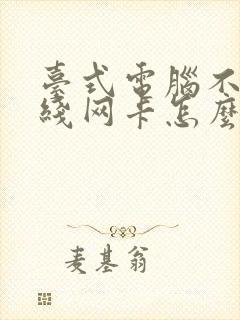 臺式電腦不
綫网卡怎麽
麦基翁